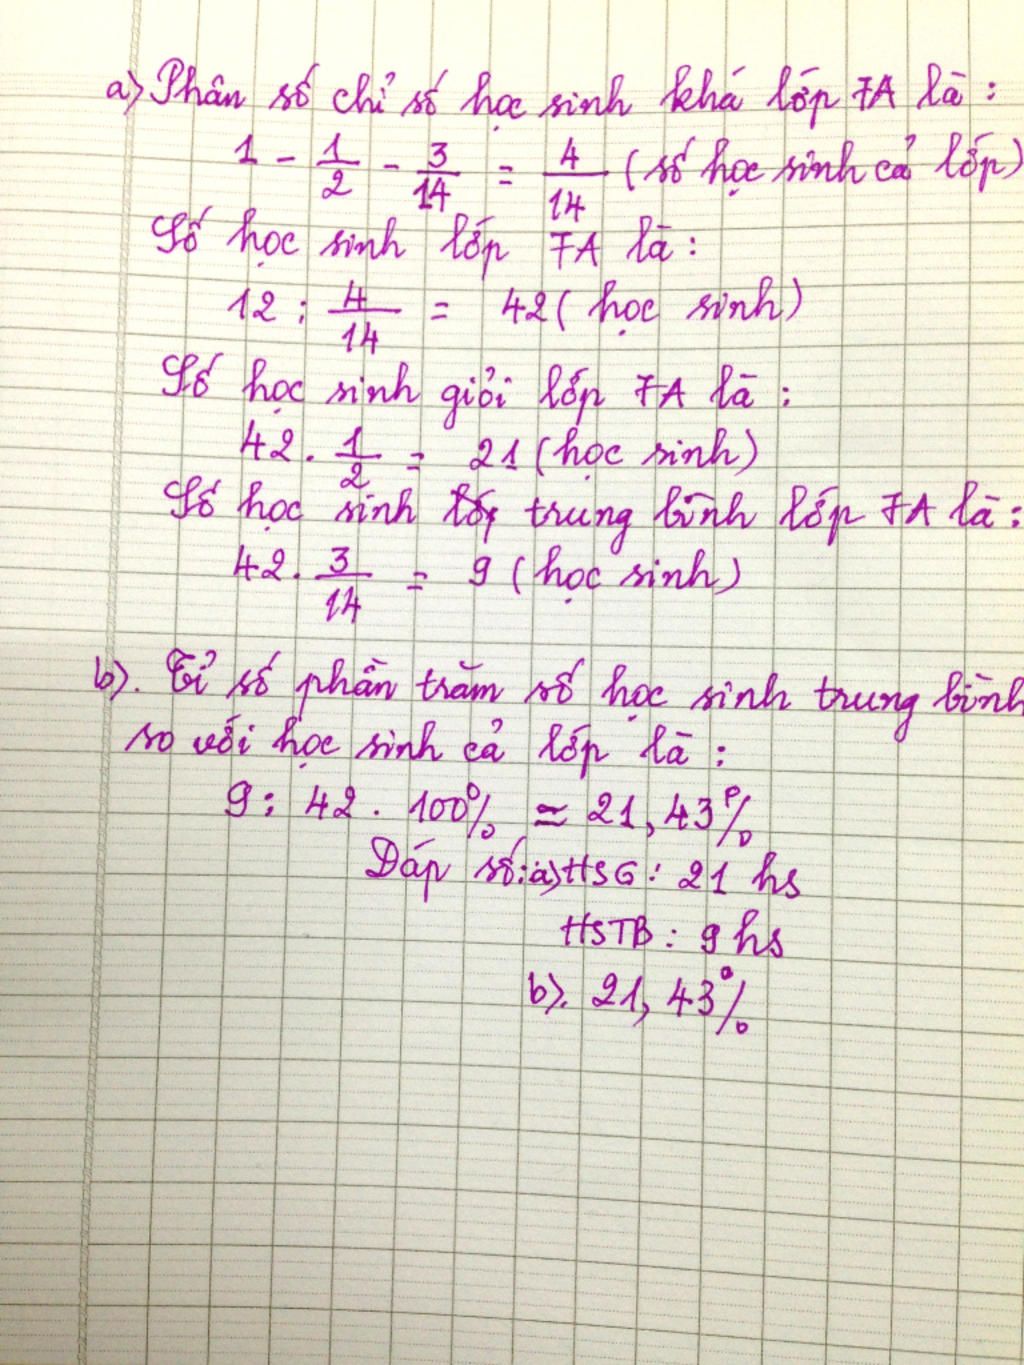 a) Phân số chỉ số học sinh khá lớp 7A là :
1 - 1/2 - 3/14 = 4/14 (số học sinh cả lớp)
Số học sinh lớp 7A là :
12 : 4/14 = 42 ( học sinh)
Số học sinh giỏi lớp 7A là :
42 . 1/2 = 21 (học sinh)
Số học sinh trung bình lớp 7A là :
42 . 3/14 = 9 ( học sinh)
b). Tỉ số phần trăm số học sinh trung bình
so với học sinh cả lớp là :
9 : 42 . 100% ≃ 21,43%
Đáp số: a) HSG : 21 hs
HSTB : 9 hs
b). 21,43%